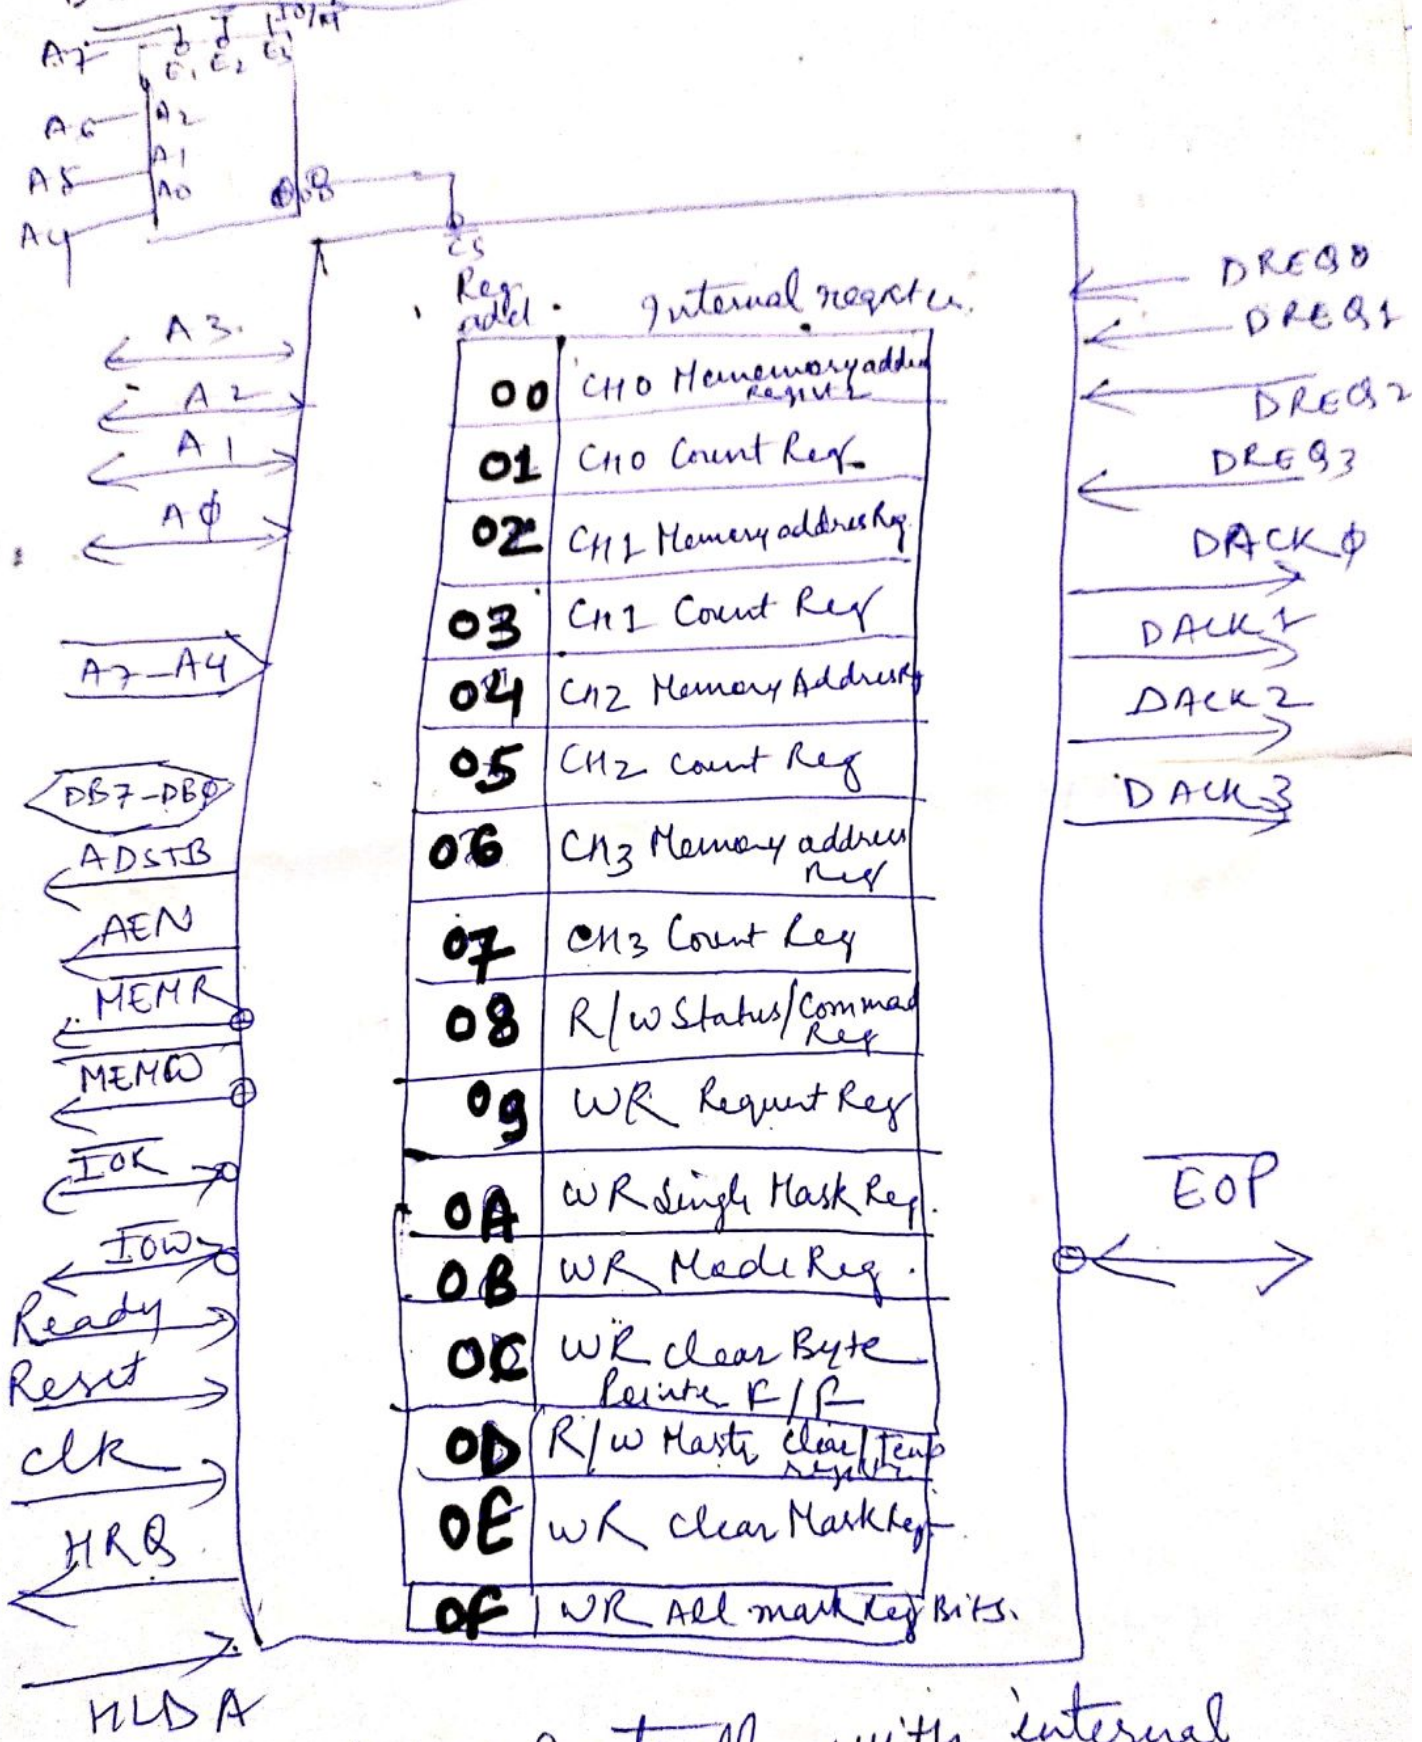 A7
IO/M
E1 E2 E3
A6 A2
A1
A5 A0
A4
CS
Reg. Internal register.
add
A3
A2
A1
A0
A7-A4
DB7-DB0
ADSTB
AEN
MEMR
MEMW
IOR
IOW
Ready
Reset
Clk
HRQ
HLDA
00 CH0 Mememory addre
Register
01 CH0 Count Reg.
02 CH1 Memory addres Reg.
03 CH1 Count Reg
04 CH2 Memory Address Rg
05 CH2 Count Reg
06 CH3 Memory address
Reg
07 CH3 Count Reg
08 R/W Status/Commad
Reg
09 WR Request Reg
0A WR Single Mask Reg.
0B WR Mode Reg.
0C WR Clear Byte
Pointer F/F
0D R/W Master Clear/Temp
register
0E WR Clear Mask Reg
0F WR All mask Reg Bits.
DREQ0
DREQ1
DREQ2
DREQ3
DACK0
DACK1
DACK2
DACK3
EOP
with internal